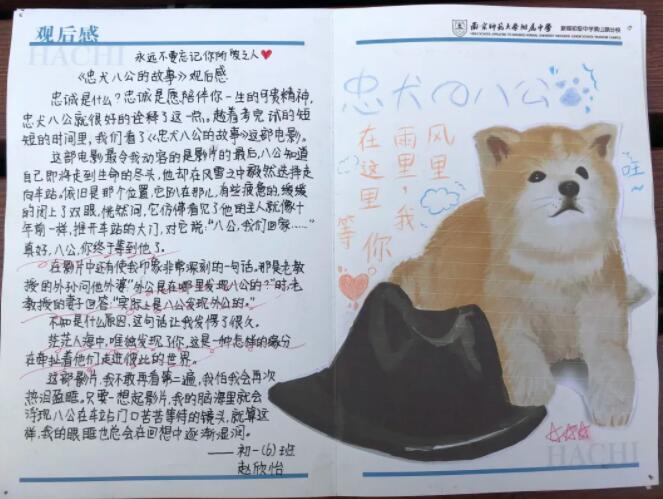 观后感
HACHI
永远不要忘记你所爱之人
《忠犬八公的故事》观后感
忠诚是什么？忠诚是愿陪伴你一生的可贵精神，
忠犬八公就很好的诠释了这一点。趁着考完试的短
短的时间里，我们看了《忠犬八公的故事》这部电影。
这部电影最令我动容的是影片的最后，八公知道
自己即将走到生命的尽头，他却在风雪之中毅然选择走
向车站。依旧是那个位置，它趴在那儿，有些疲惫的，缓缓
的闭上了双眼，恍然间，它仿佛看见了他的主人就像十
年前一样，推开车站的大门，对它说：“八公，我们回家……”
真好，八公，你终于等到他了。
在影片中还有使我印象非常深刻的一句话。那是老教
授的外孙问他外婆“外公是在哪里发现八公的？”时，老
教授的妻子回答“实际上是八公发现外公的。”
不知是什么原因，这句话让我发愣了很久。
茫茫人海中，唯独发现了你，这是一种怎样的缘分
在牵扯着他们走进彼此的世界。
这部影片，我不敢再看第二遍，我怕我会再次
热泪盈眶。只要一想起影片，我的脑海里就会
浮现八公在车站门口苦苦等待的镜头，就算这
样，我的眼眶也总会在回想中逐渐湿润。
——初一(6)班
赵欣怡
南京师范大学附属中学
新城初级中学黄山路分校
忠犬八公
风里
雨里，我
在这里
等你
汪~
HACHI